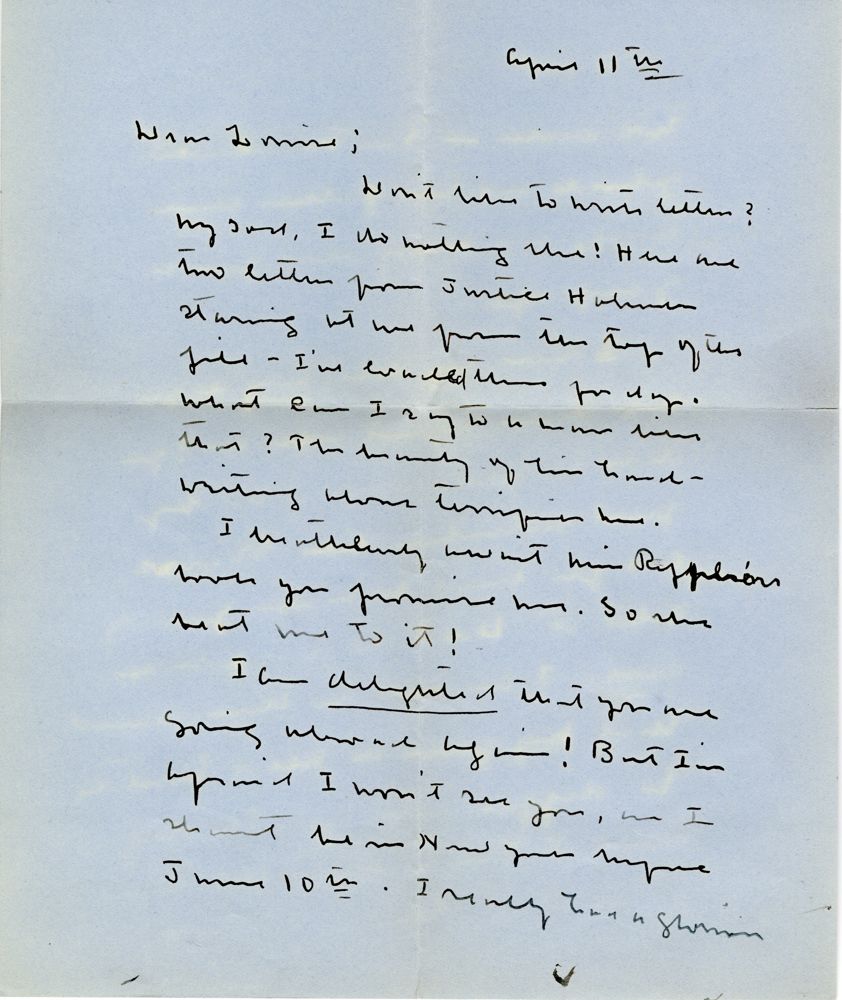 April 11th
Dear Louise;
Don't like to write letters?
My dear, I do nothing else! Here are
two letters from Justice Holmes
staring at me from the top of the
file - I've evaded them for days.
What can I say to a man like
that? The beauty of his hand-
writing alone terrifies me.
I breathlessly await Miss
book you promise me. So she
beat me to it!
I am delighted that you are
going abroad again! But I'm
afraid I won't see you, as I
shan't be in New York before
June 10th. I really have a glorious